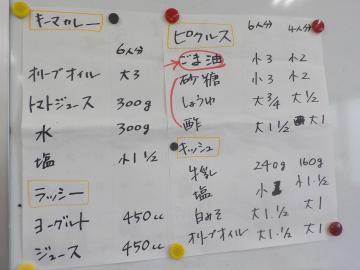 キーマカレー
6人分
オリーブオイル 大3
トマトジュース 300g
水 300g
塩 小1 1/2
ラッシー
ヨーグルト 450cc
ジュース 450cc
ピクルス
6人分 4人分
ごま油 小3 小2
砂糖 小3 小2
しょうゆ 大3/4 大1/2
酢 大1 1/2 大1
キッシュ
牛乳 240g 160g
塩 小 小1 1/2
白みそ 大1 1/2 大1
オリーブオイル 大1 1/2 大1